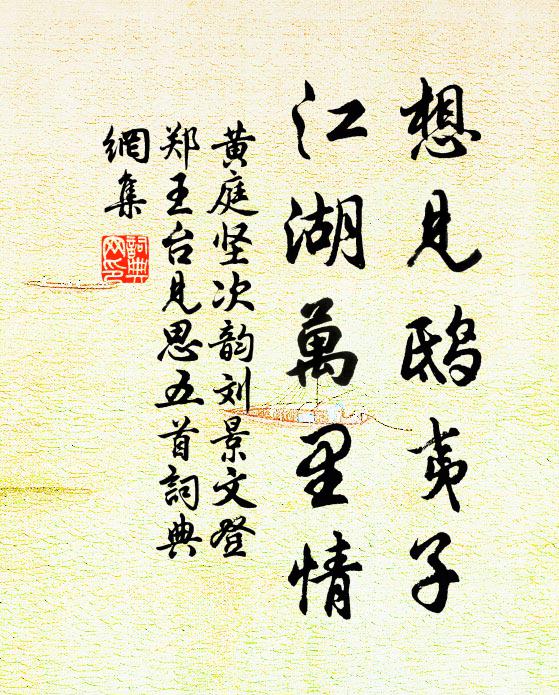 想見鴟夷子
江湖萬里情
黄庭坚次韵刘景文登
郑王台見思五首詞典
網集
詞典网印